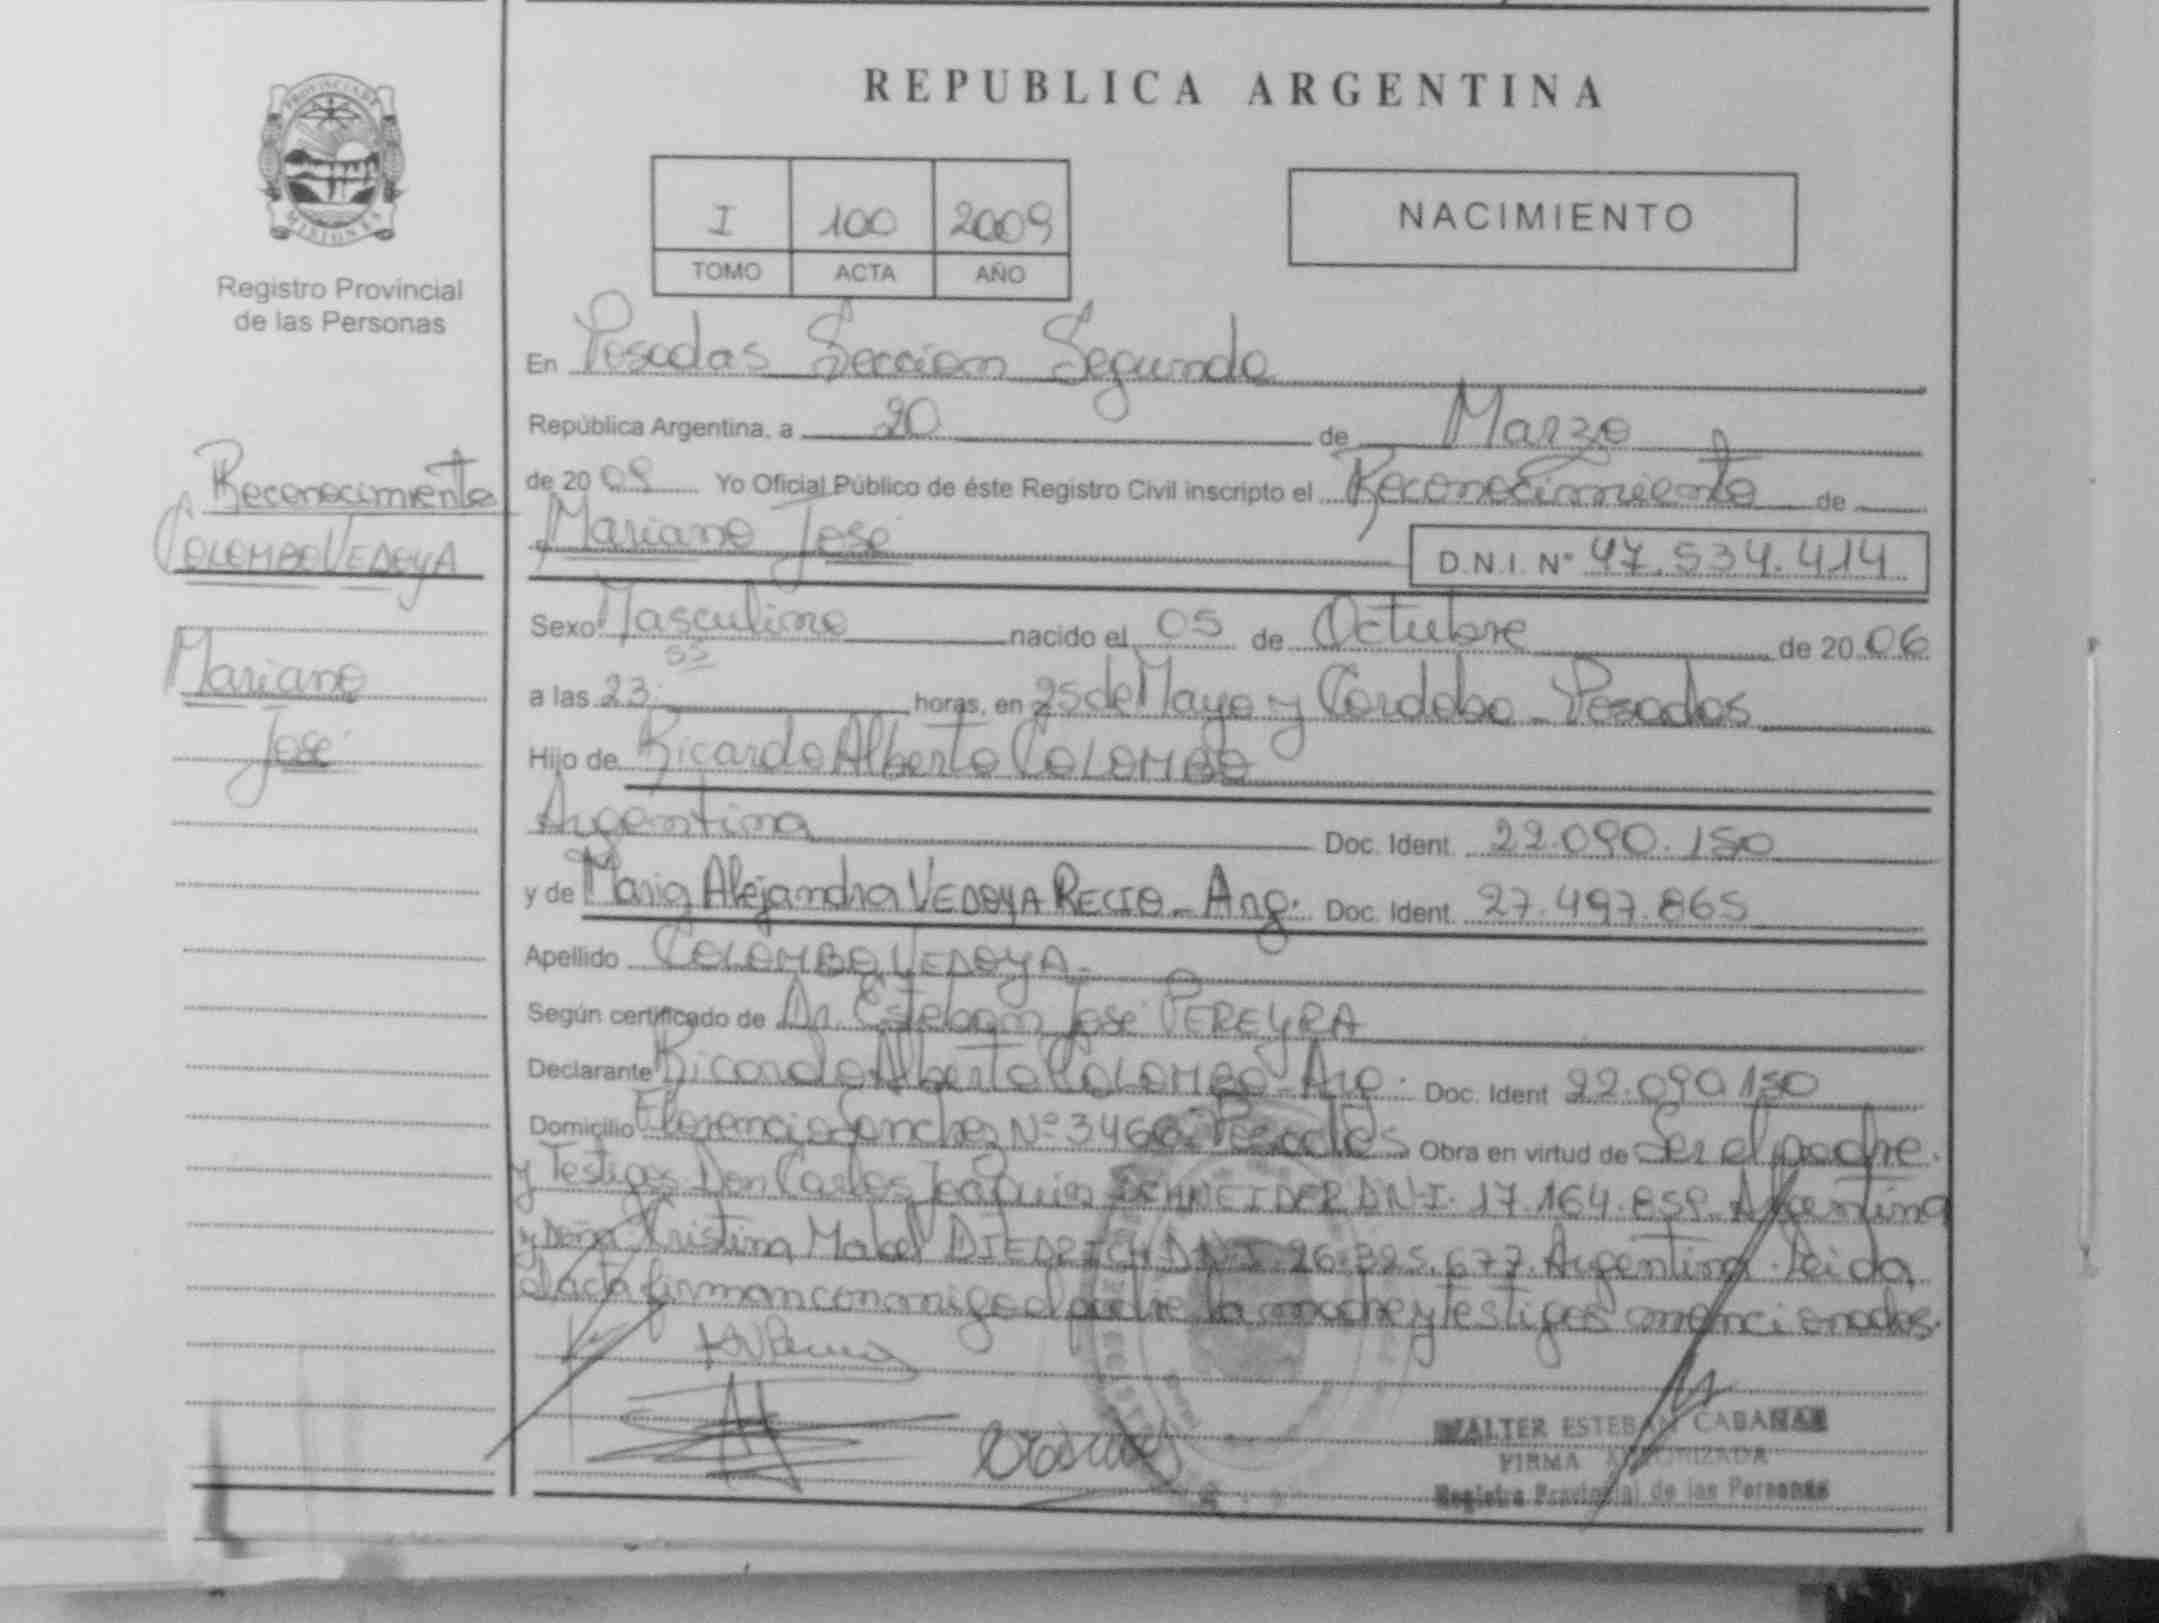 REPUBLICA ARGENTINA
PROVINCIA DE
MISIONES
Registro Provincial
de las Personas
I 100 2009
TOMO ACTA AÑO
NACIMIENTO
Reconocimiento
COLOMBO VEDOYA
Mariano
José
En Posadas Sección Segunda
República Argentina, a 20 de Marzo
de 2009 Yo Oficial Público de éste Registro Civil inscripto el Reconocimiento de
Mariano José D.N.I. Nº 47.534.414
Sexo Masculino nacido el 05 de Octubre de 2006
a las 23:55 horas, en 25 de Mayo y Córdoba - Posadas
Hijo de Ricardo Alberto COLOMBO
Argentina Doc. Ident. 22.090.150
y de Maria Alejandra VEDOYA RECIO - Arg. Doc. Ident. 27.497.865
Apellido COLOMBO VEDOYA-
Según certificado de Dr. Esteban José PEREYRA
Declarante Ricardo Alberto COLOMBO - Arg. Doc. Ident 22.090.150
Domicilio Florencio Sanchez Nº 3460 Posadas Obra en virtud de Ser el padre.
y Testigos Don Carlos Joaquin SCHNEIDER D.N.I. 17.164.859 Argentina
y Doña Cristina Mabel DIEDRICH D.N.I. 26.325.677. Argentina. Leida
el acta firman conmigo el padre la madre y testigos mencionados.
WALTER ESTEBAN CABAÑAS
FIRMA AUTORIZADA
Registro Provincial de las Personas